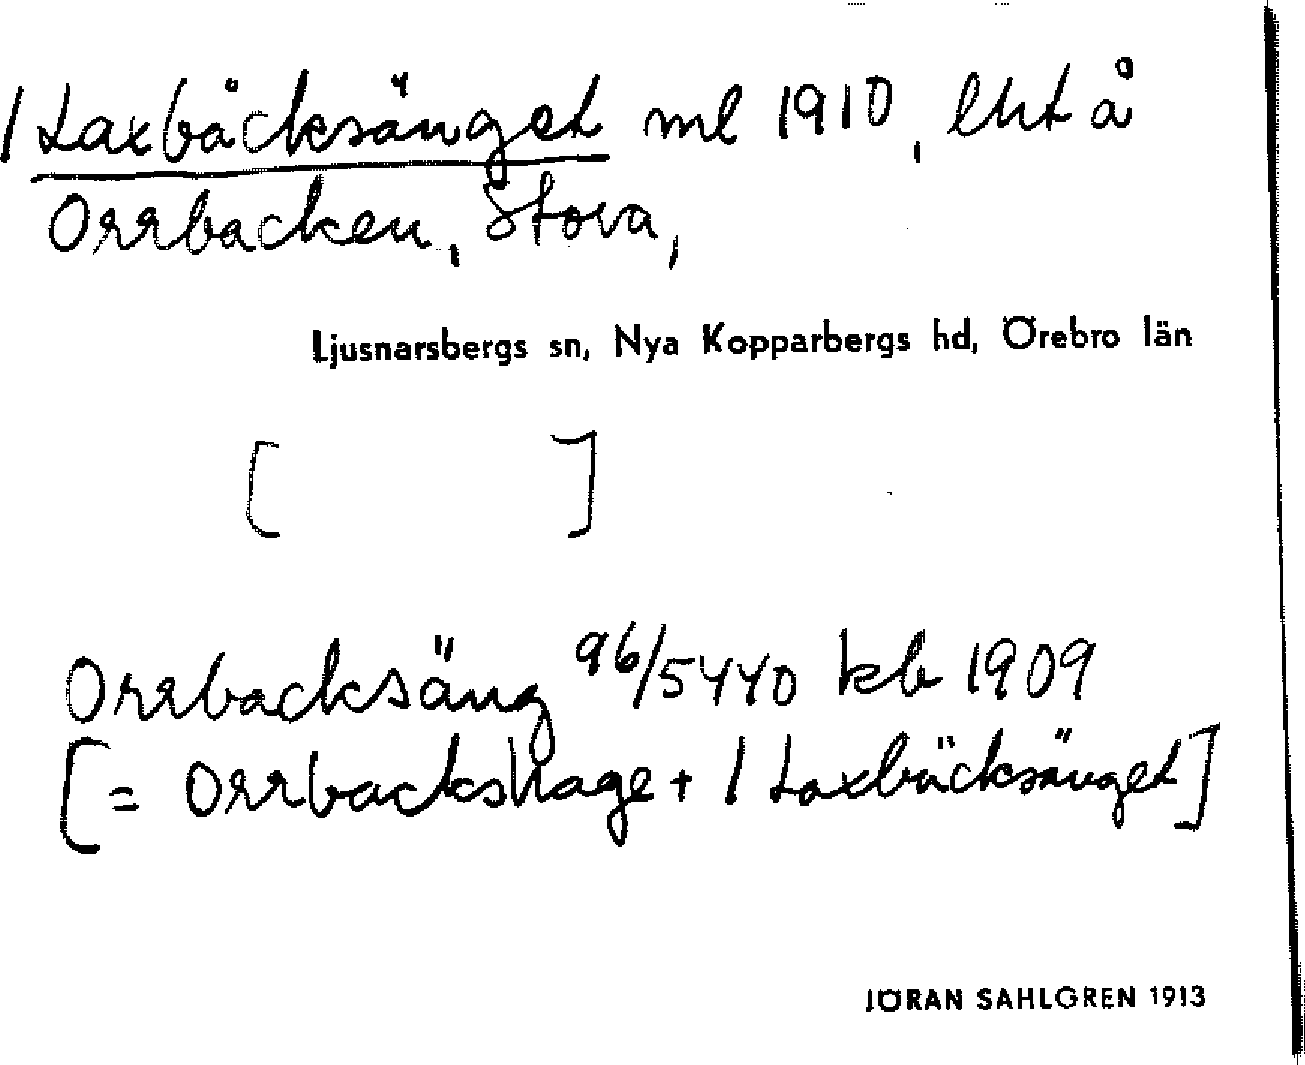 / Laxbäcksänget ml 1910, lht å
Orrbacken, Stora,
Ljusnarsbergs sn, Nya Kopparbergs hd, Örebro län
[ ]
Orrbacksäng 96/5440 kb 1909
[= Orrbackshage + / Laxbäcksänget]
JÖRAN SAHLGREN 1913